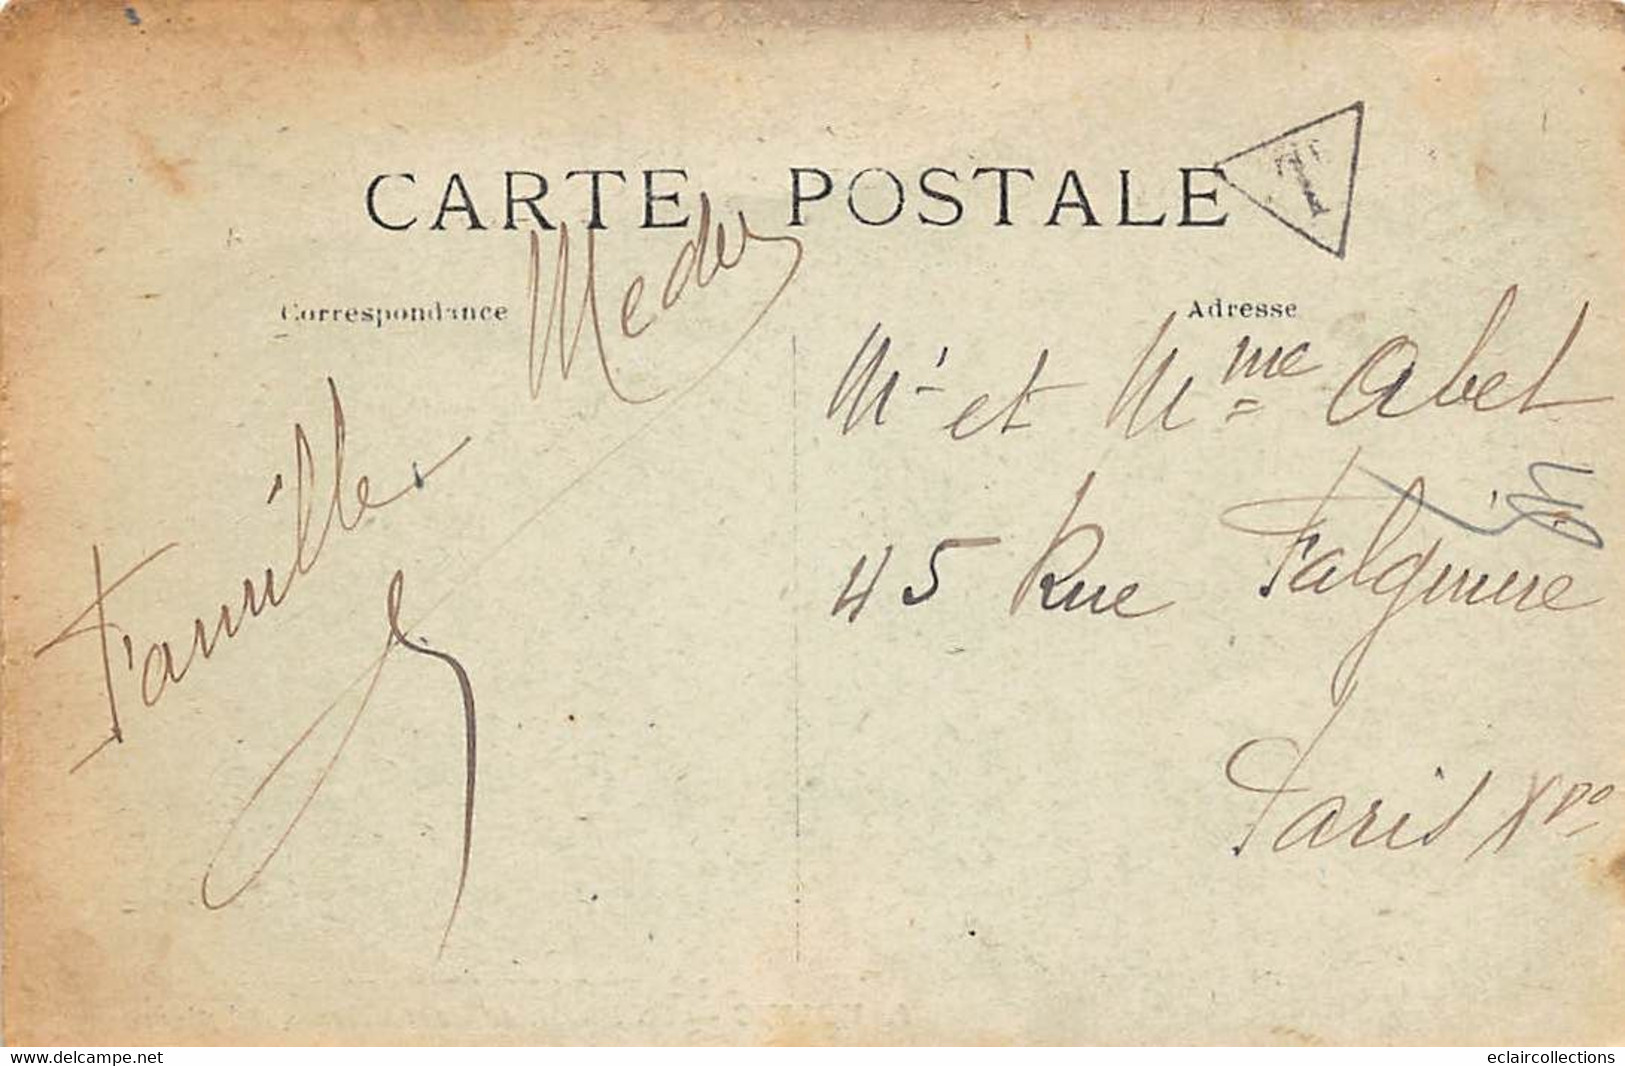 CARTE POSTALE
T
Correspondance
Adresse
Famille
Mr et Mme Abel
45 Rue Falguière
Paris XVo
www.delcampe.net
eclaircollections